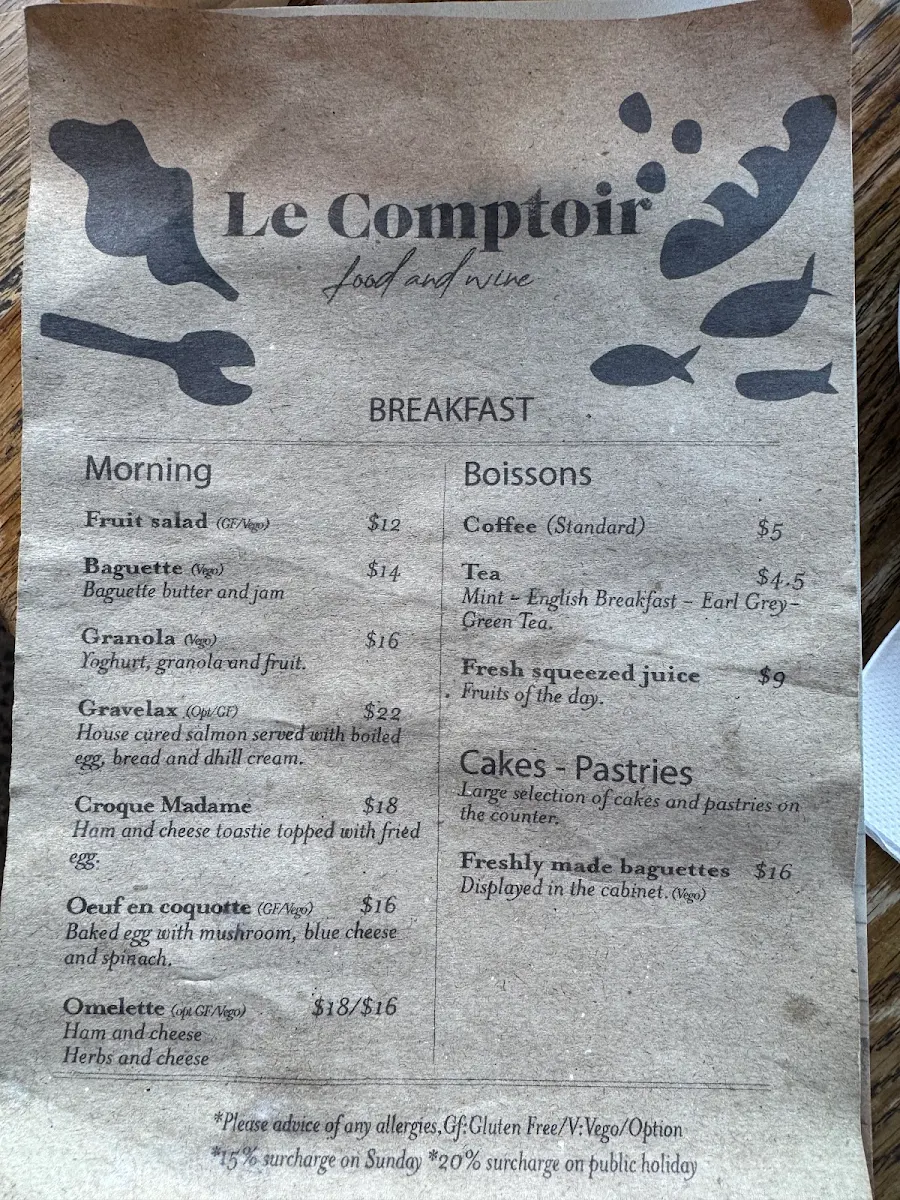 Le Comptoir
food and wine
BREAKFAST
Morning
Fruit salad (GF/Vego) $12
Baguette (Vego) $14
Baguette butter and jam
Granola (Vego) $16
Yoghurt, granola and fruit.
Gravelax (Opt/GF) $22
House cured salmon served with boiled
egg, bread and dhill cream.
Croque Madame $18
Ham and cheese toastie topped with fried
egg.
Oeuf en coquotte (GF/Vego) $16
Baked egg with mushroom, blue cheese
and spinach.
Omelette (opt GF/Vego) $18/$16
Ham and cheese
Herbs and cheese
Boissons
Coffee (Standard) $5
Tea $4.5
Mint - English Breakfast - Earl Grey-
Green Tea.
Fresh squeezed juice $9
Fruits of the day.
Cakes - Pastries
Large selection of cakes and pastries on
the counter.
Freshly made baguettes $16
Displayed in the cabinet. (Vego)
*Please advice of any allergies,Gf:Gluten Free/V:Vego/Option
*15% surcharge on Sunday *20% surcharge on public holiday